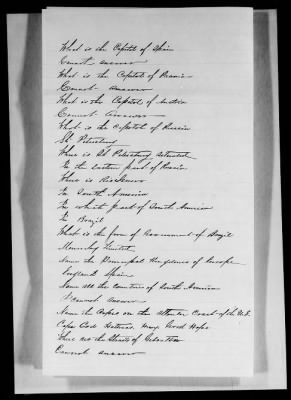 What is the Capital of Spain
Cannot answer
What is the Capital of
Cannot answer
What is the Capital of Austria
Cannot answer
What is the Capital of Russia
St Petersburg
Where is St Petersburg situated
In the Eastern part of Russia
Where is Rio Janeiro
In South America
In which part of South America
In Brazil
What is the form of Government of Brazil
Monarchy limited
Name the Principal Kingdoms of Europe
England Spain
Name all the Countries of South America
Cannot answer
Name the Capes on the Atlantic Coast of the U.S.
Cape Cod Hatteras Good Hope
Where are the Straits of Gibraltar
Cannot answer